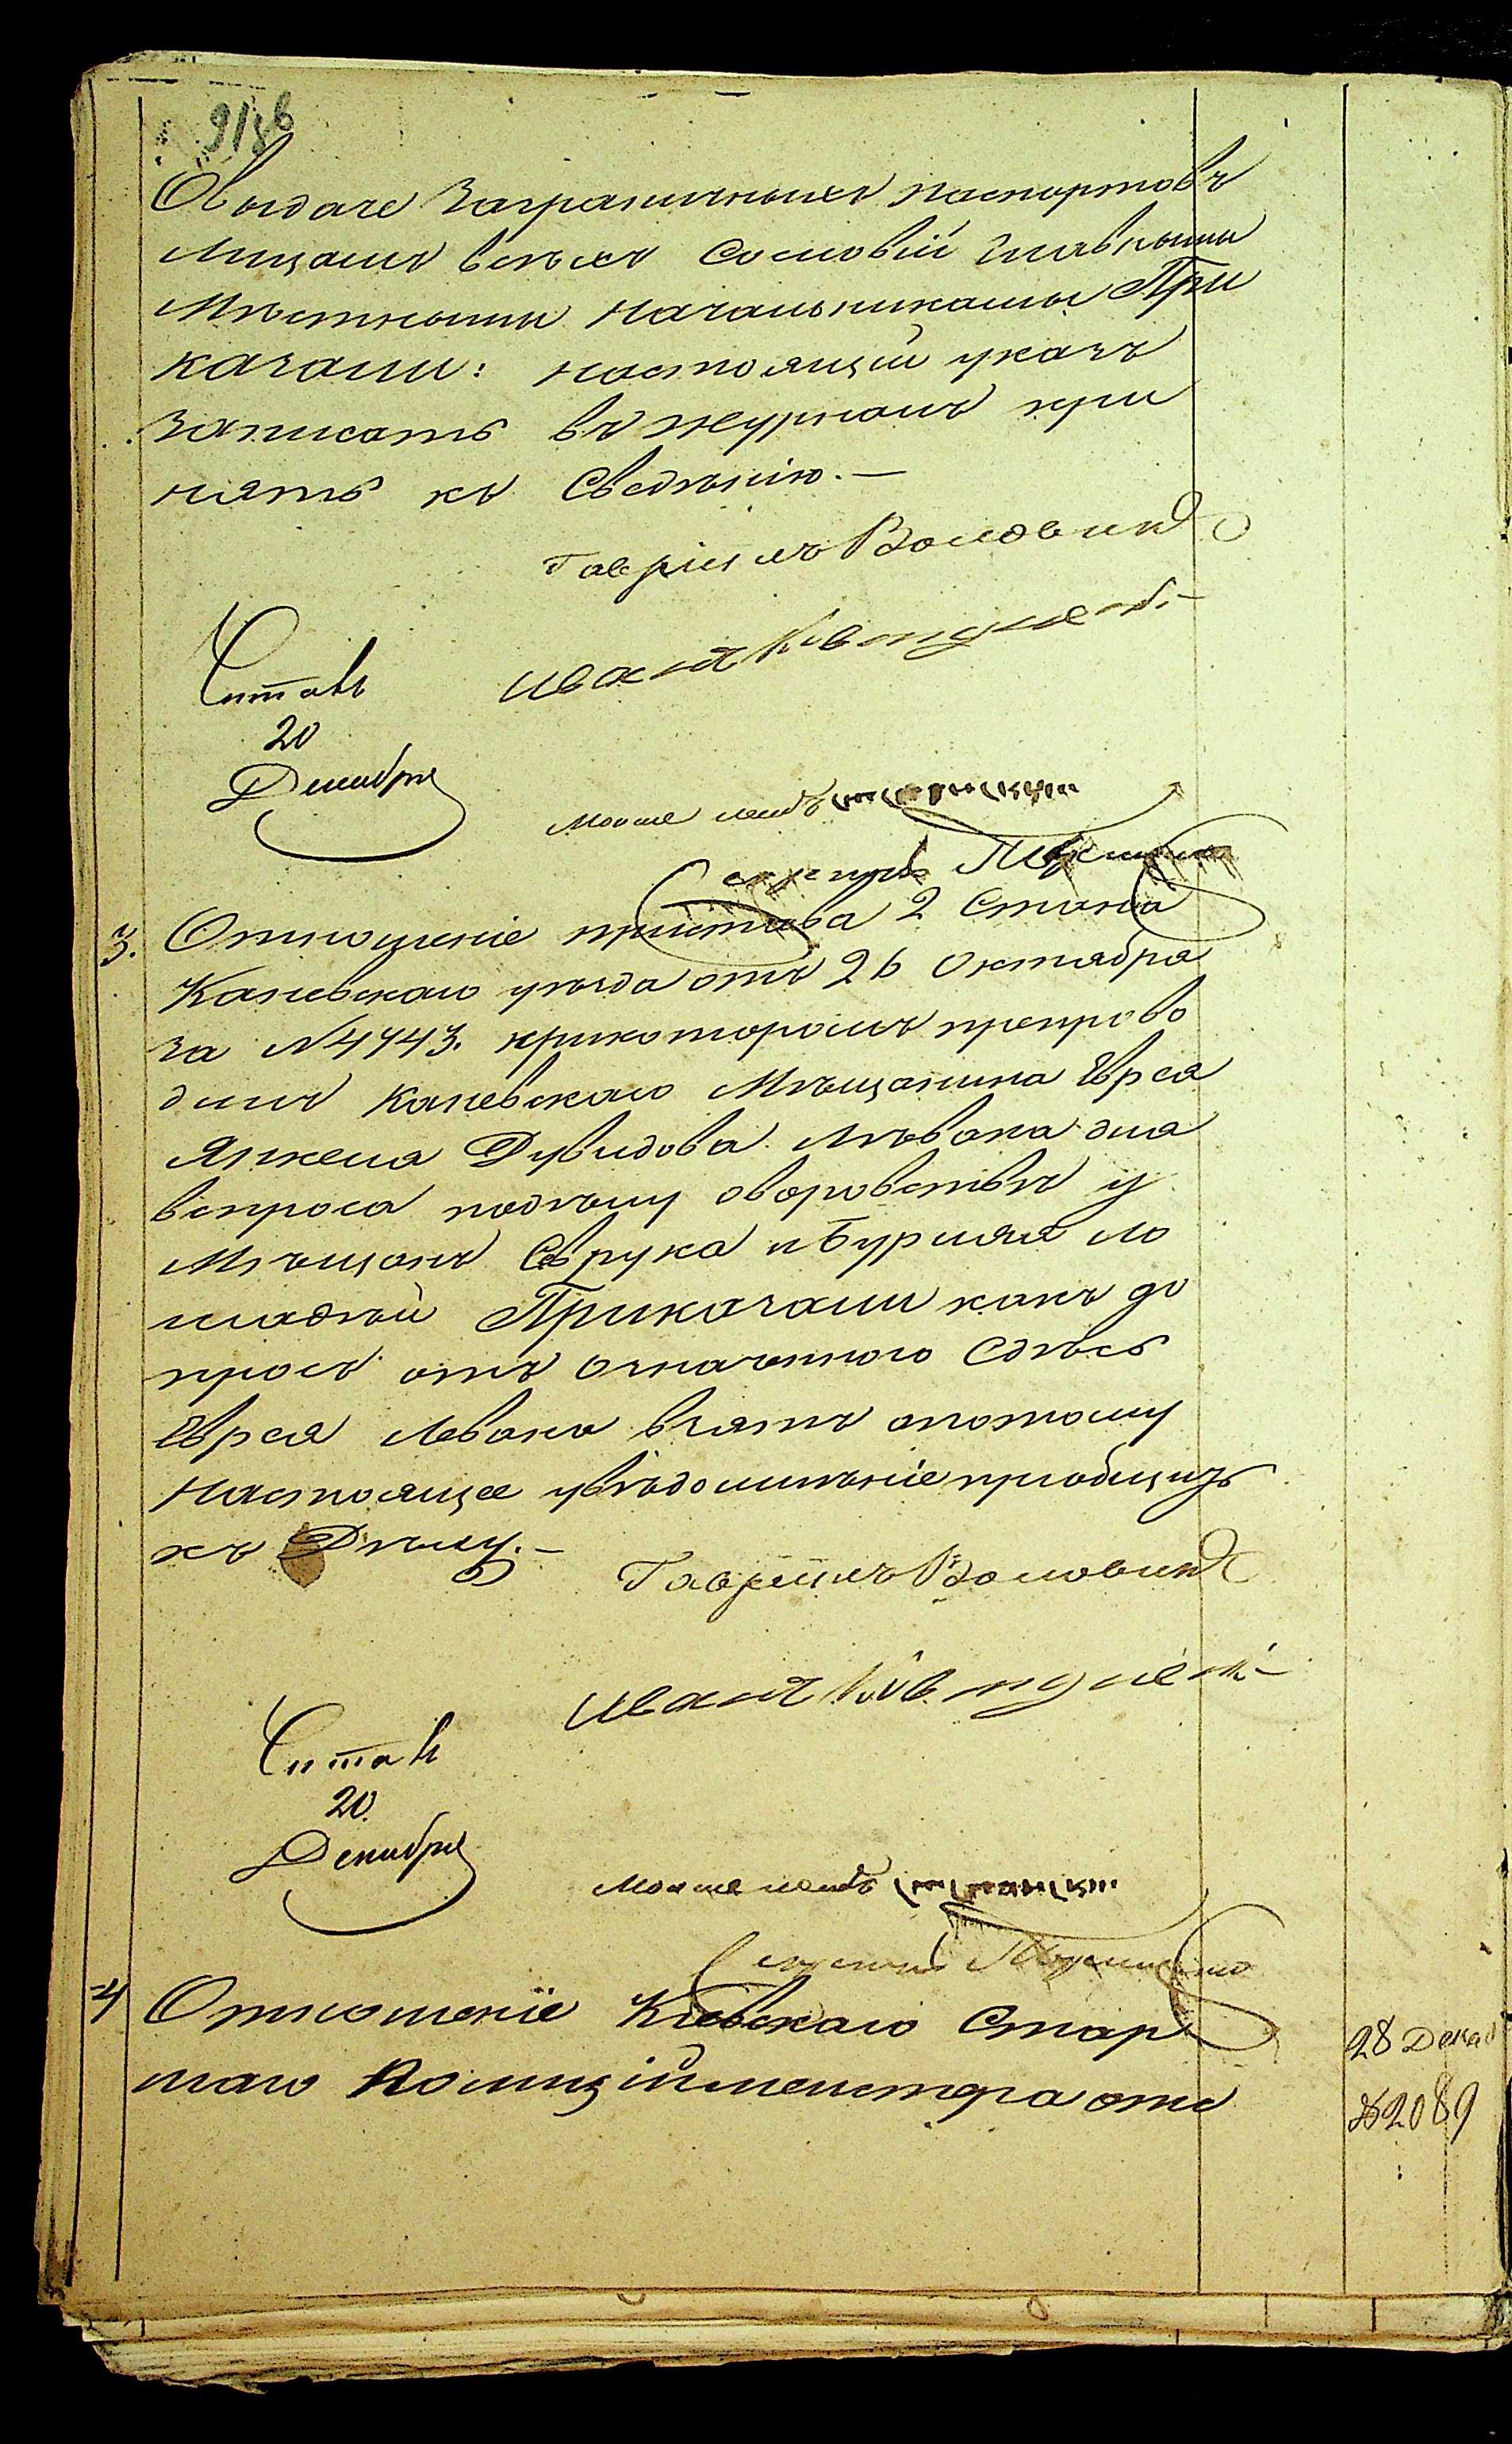 О выдаче Заграничныхъ паспортовъ
Лицамъ всѣхъ Сословій Главными
Мѣстными Начальниками При
казали: настоящій указъ
записать въ журналъ при
нять къ Сведѣнію.—
Гавріилъ Воловикъ
Иванъ
Читалъ
20
Декабря
Мошко
Секретарь
3. Отношеніе пристава 2 Стана
Каневскаго уѣзда отъ 26 Октября
за №4443. при которомъ препрово
дилъ Каневскаго Мѣщанина Еврея
Янкеля Дувидова Лѣвака для
вспроса по дѣлу о воровствѣ у
Мѣщанъ Сврука и Бурлая ло
шадей Приказали какъ до
просъ отъ означеннаго Сдѣсь
Еврея Левака взятъ а потому
настоящее увѣдомленіе пріобщить
къ Дѣлу.—
Гавріилъ Воловикъ
Иванъ
Читалъ
20
Декабря
Мошко
Секретарь
4 Отношеніе Кіевскаго Стар
шаго Полиціймейстера отъ
28 Декаб
№2089